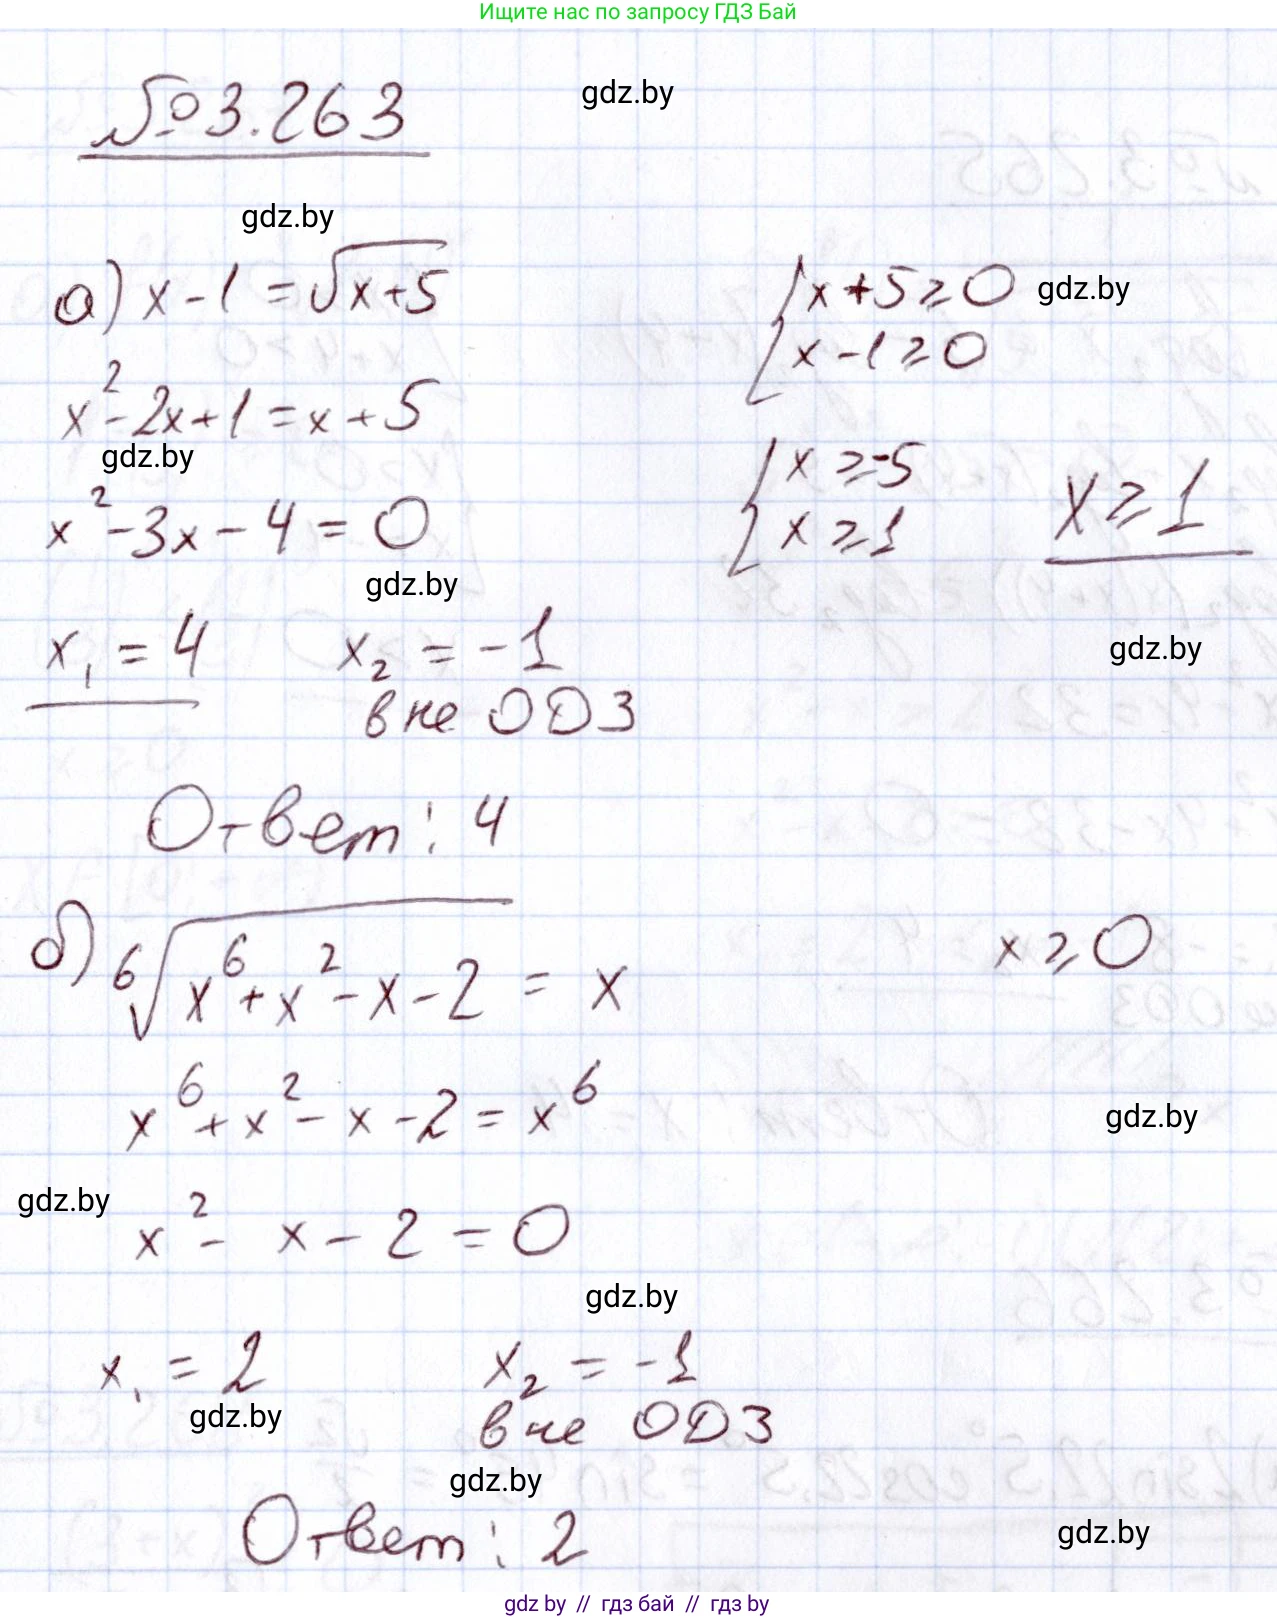 Ищите нас по запросу ГДЗ Бай
№3.263
gdz.by
gdz.by
а) x-1 = √(x+5)
{x+5⩾0
gdz.by
x-1⩾0
x²-2x+1=x+5
gdz.by
{x⩾-5
x⩾1
x⩾1
x²-3x-4=0
gdz.by
gdz.by
x₁=4 x₂=-1
вне ОДЗ
Ответ: 4
б) ⁶√(x⁶+x²-x-2) = x
x⩾0
x⁶+x²-x-2=x⁶
gdz.by
gdz.by
x²-x-2=0
gdz.by
x₁=2 x₂=-1
gdz.by
вне ОДЗ
gdz.by
Ответ: 2
gdz.by
gdz.by // гдз бай // гдз by